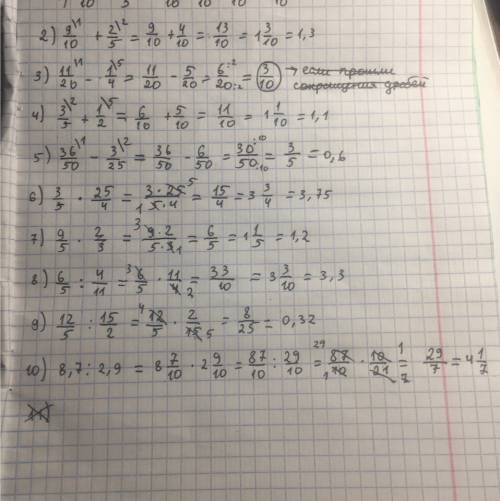 2) 9/10\1 + 2/5\2 = 9/10 + 4/10 = 13/10 = 1 3/10 = 1,3
3) 11/20\1 - 1/4\5 = 11/20 - 5/20 = 6:2/20:2 = 3/10 → если прошли
сокращения дробей
4) 3/5\2 + 1/2\5 = 6/10 + 5/10 = 11/10 = 1 1/10 = 1,1
5) 36/50\1 - 3/25\2 = 36/50 - 6/50 = 30:10/50:10 = 3/5 = 0,6
6) 3/5 · 25/4 = 3·25 5/1 5·4 = 15/4 = 3 3/4 = 3,75
7) 9/5 · 2/3 = 3 9·2/5·3 1 = 6/5 = 1 1/5 = 1,2
8) 6/5 : 4/11 = 3 6/5 · 11/4 2 = 33/10 = 3 3/10 = 3,3
9) 12/5 : 15/2 = 4 12/5 · 2/15 5 = 8/25 = 0,32
10) 8,7 : 2,9 = 8 7/10 · 2 9/10 = 87/10 : 29/10 = 29 87/1 10 · 10 1/21 7 = 29/7 = 4 1/7